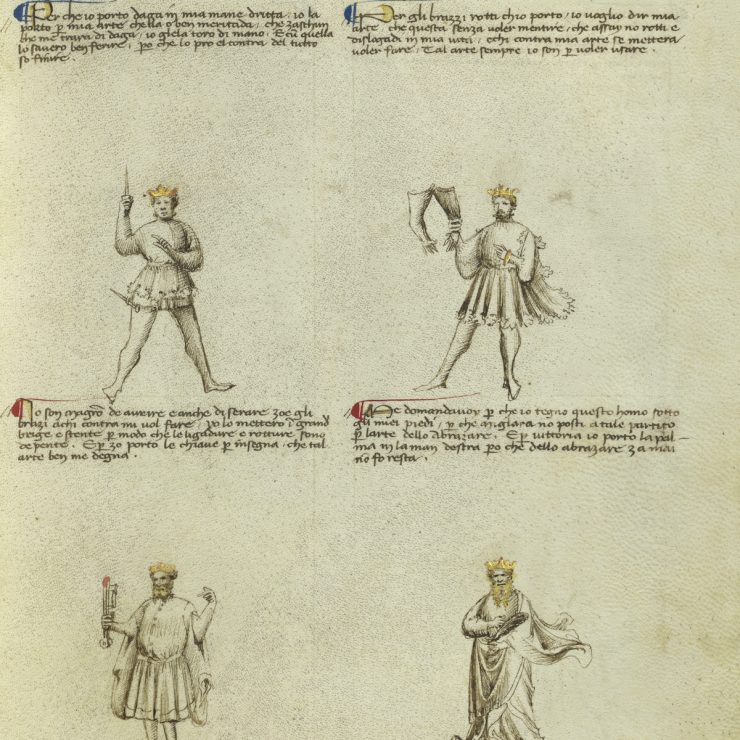 Per che io porto daga in mia mane dritta, io la
porto p mia arte chella o ben meritada, che zaschun
che me trara di daga, io giela toro di mano. E cū quella
lo savero ben ferire, po che lo pro el contra del tutto
so finire.
Per gli brazzi rotti ch'io porto, io voglio dir mia
arte, che questa senza voler mentire, che assay no rotti e
dislogadi in mia vita, e chi contra mia arte se mettera
voler fare, Tal arte sempre io son p voler usare.
Io son magistro de avrire e anche di serare zoe gli
brazi a chi contra mi vol fare, po lo mettero i grand
brige e stente, p modo che le ligadure e rotture sono
depente. E p zo porto le chiave p insegna, che tal
arte ben me degna.
Me domandavoy p che io tegno questo homo sotto
gli miei piedi, p che miglara no posti a tale partito
p larte dello Abrazare. E p vittoria io porto la pal-
ma in la man dostra po che dello abrazare za mai
no fo resta.